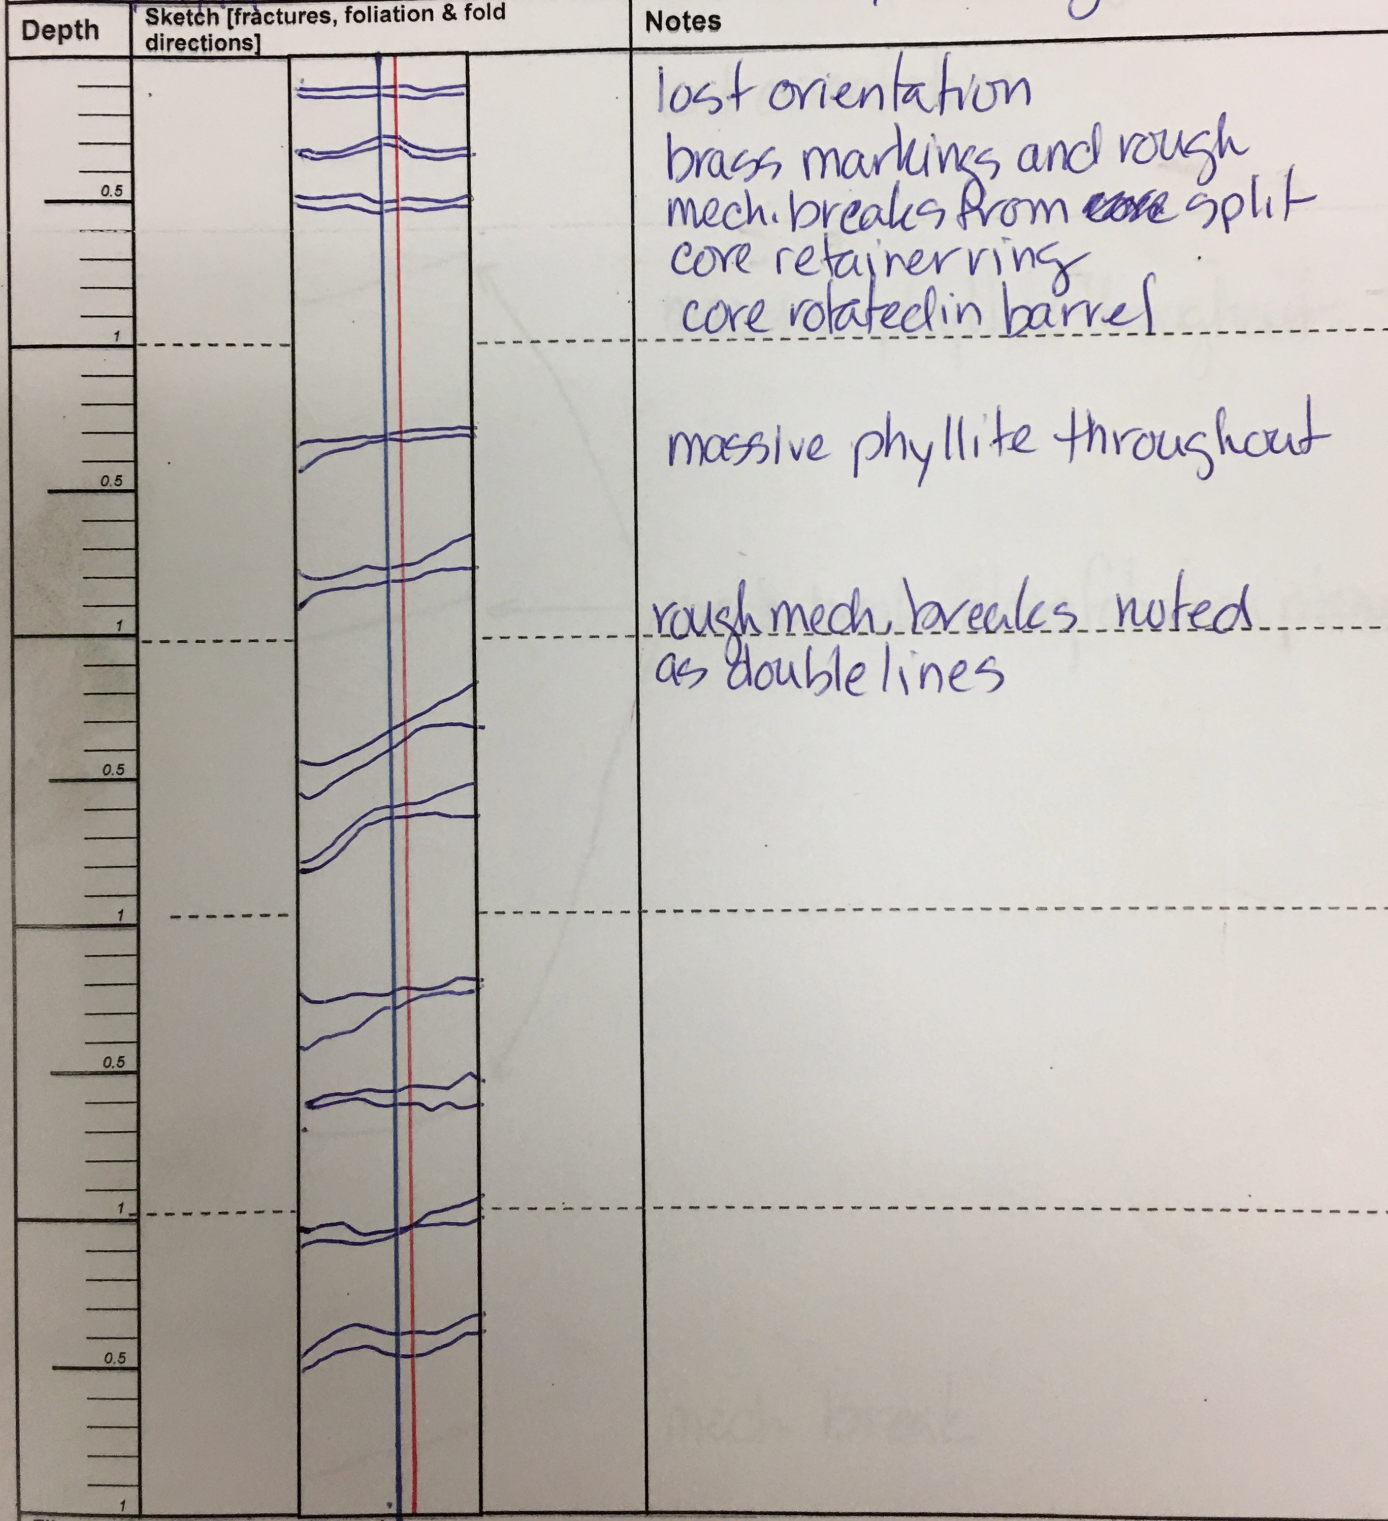 Depth
Sketch [fractures, foliation & fold
directions]
Notes
lost orientation
brass markings and rough
0.5
mech. breaks from split
core retainer ring
core rotated in barrel
1
massive phyllite throughout
0.5
rough mech. breaks noted
1
as double lines
0.5
1
0.5
1
0.5
1